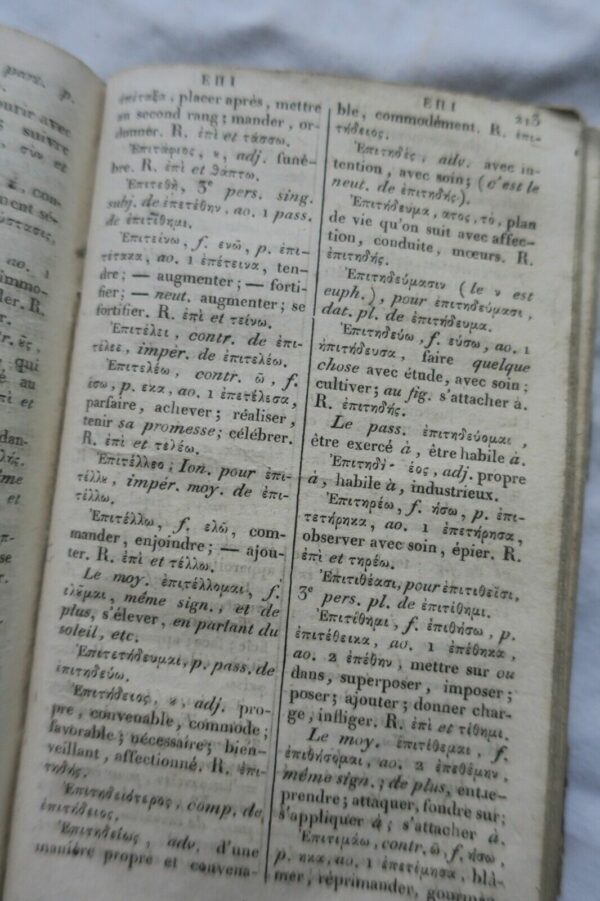 part. p.
ourir avec
suivre
σὺν et
con-
ment sé-
ύστασις,
ao. 1
immo-
der. R.
ao. 1
qui
au
et
dan-
λῆς.
même
et
se
ΕΠΙ
ἐπίταξα, placer après, mettre
au second rang; mander, or-
donner. R. ἐπὶ et τάσσω.
Ἐπιτάφιος, ȣ, adj. funé-
bre. R. ἐπὶ et θάπτω.
Ἐπιτεθῇ, 3e pers. sing.
subj. de ἐπετέθην, ao. 1 pass.
de ἐπιτίθημι.
Ἐπιτείνω, f. ενῶ, p. ἐπι-
τέτακα, ao. 1 ἐπέτεινα, ten-
dre; — augmenter; — forti-
fier; — neut. augmenter; se
fortifier. R. ἐπὶ et τείνω.
Ἐπιτέλει, contr. de ἐπι-
τέλεε, impér. de ἐπιτελέω.
Ἐπιτελέω, contr. ῶ, f.
έσω, p. εκα, ao. 1 ἐπετέλεσα,
parfaire, achever; réaliser,
tenir sa promesse; célébrer.
R. ἐπὶ et τελέω.
Ἐπιτέλλεο; Ion. pour ἐπι-
τέλλȣ, impér. moy. de ἐπι-
τέλλω.
Ἐπιτέλλω, f. ελῶ, com-
mander, enjoindre; — ajou-
ter. R. ἐπὶ et τέλλω.
Le moy. ἐπιτέλλομαι, f.
ελȣμαι, même sign., et de
plus, s'élever, en parlant du
soleil, etc.
Ἐπιτετήδευμαι, p. pass. de
ἐπιτηδεύω.
Ἐπιτήδειος, ȣ, adj. pro-
pre, convenable, commode;
favorable; nécessaire; bien-
veillant, affectionné. R. ἐπι-
τηδής.
Ἐπιτηδειότερος, comp. de
ἐπιτήδειος.
Ἐπιτηδείως, adv. d'une
manière propre et convena-
ΕΠΙ 213
ble, commodément. R. ἐπι-
τήδειος.
Ἐπιτηδὲς, adv. avec in-
tention, avec soin; (c'est le
neut. de ἐπιτηδής).
Ἐπιτήδευμα, ατος, τὸ, plan
de vie qu'on suit avec affec-
tion, conduite, mœurs. R.
ἐπιτηδής.
Ἐπιτηδεύμασιν (le ν est
euph.), pour ἐπιτηδεύμασι,
dat. pl. de ἐπιτήδευμα.
Ἐπιτηδεύω, f. εύσω, ao. 1
ἐπιτήδευσα, faire quelque
chose avec étude, avec soin;
cultiver; au fig. s'attacher à.
R. ἐπιτηδής.
Le pass. ἐπιτηδεύομαι,
être exercé à, être habile à.
Ἐπιτηδὴς έος, adj. propre
à, habile à, industrieux.
Ἐπιτηρέω, f. ήσω, p. ἐπι-
τετήρηκα, ao. 1 ἐπετήρησα,
observer avec soin, épier. R.
ἐπὶ et τηρέω.
Ἐπιτιθέασι, pour ἐπιτιθεῖσι,
3e pers. pl. de ἐπιτίθημι.
Ἐπιτίθημι, f. ἐπιθήσω, p.
ἐπιτέθεικα, ao. 1 ἐπέθηκα,
ao. 2 ἐπέθην, mettre sur ou
dans, superposer, imposer;
poser; ajouter; donner char-
ge, infliger. R. ἐπὶ et τίθημι.
Le moy. ἐπιτίθεμαι, f.
ἐπιθήσομαι, ao. 2 ἐπεθέμην,
même sign.; de plus, entre-
prendre; attaquer, fondre sur;
s'appliquer à; s'attacher à.
Ἐπιτιμάω, contr. ῶ, f. ήσω,
p. ηκα, ao. 1 ἐπετίμησα, blâ-
mer, réprimander, gourmen-